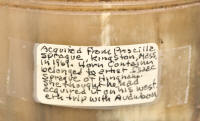 Acquired from Priscilla
Sprague, Kingston, Mass.
in 1969. Horn Container
belonged to artist Isaac
Sprague of Hingham.
She thought he had
acquired it on his west-
ern trip with Audubon